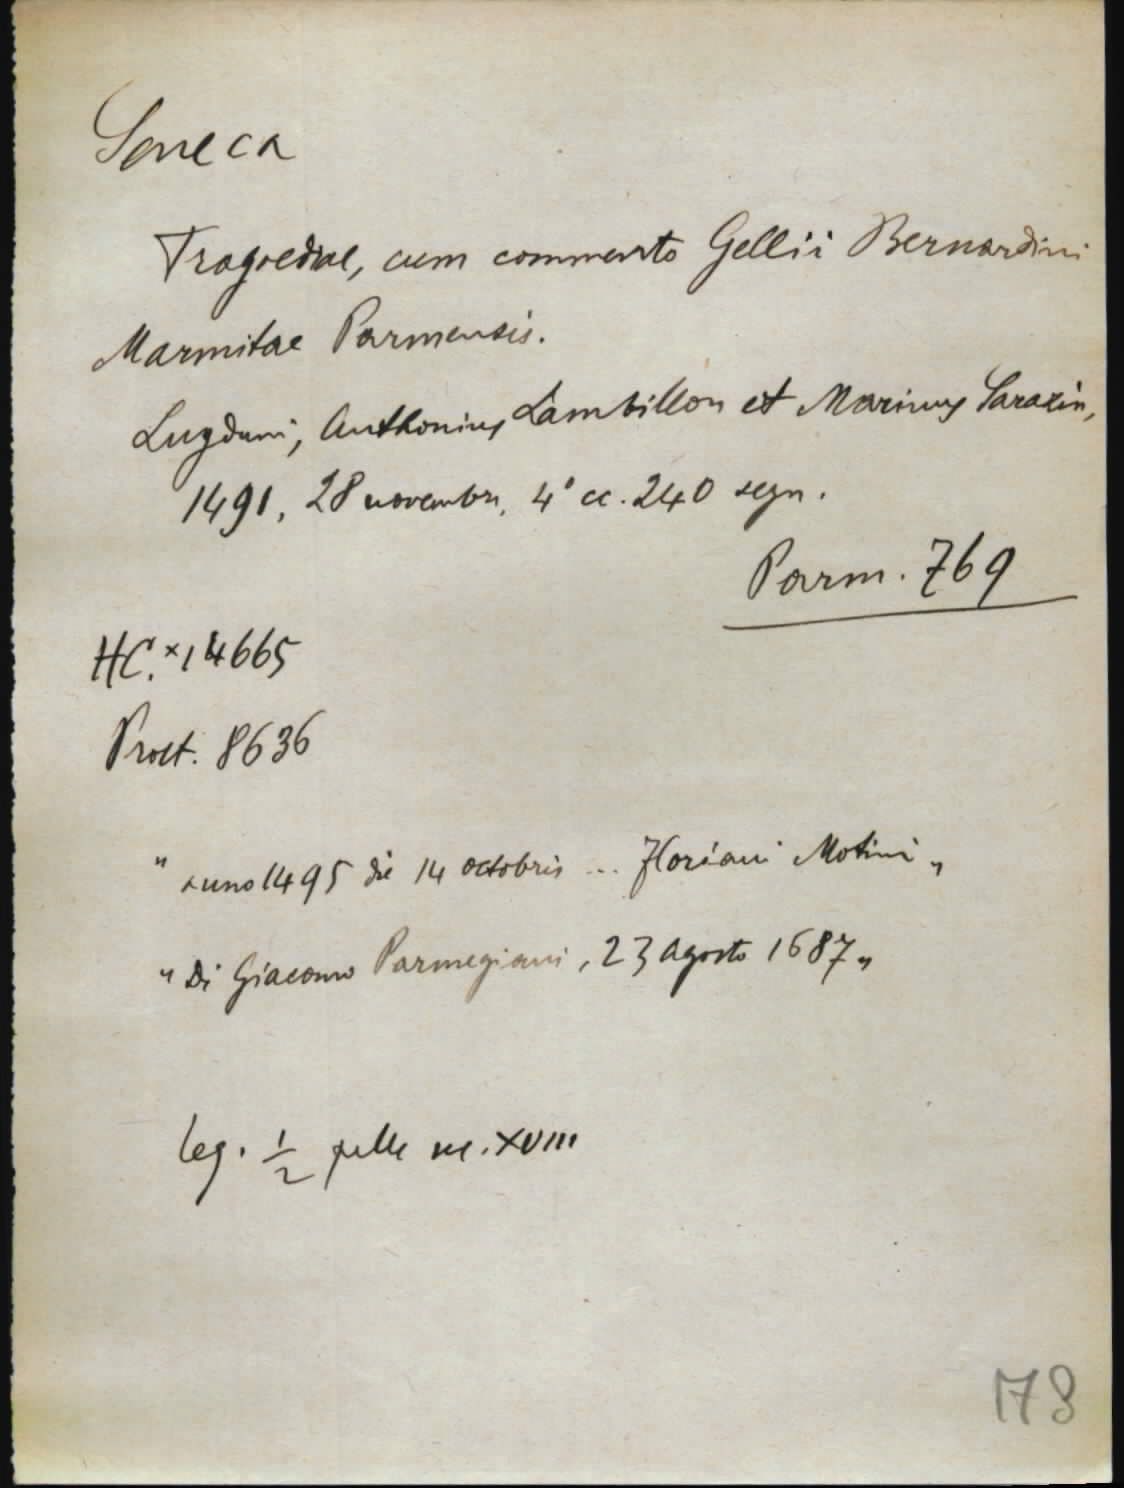 Seneca
Tragoediae, cum commento Gellii Bernardini
Marmitae Parmensis.
Lugduni, Anthonius Lambillon et Marinus Sarazin,
1491, 28 novembr, 4° cc. 240 segn.
Parm. 769
HC.×14665
Proct. 8636
" anno 1495 die 14 octobris ... Floriani Motini „
" Di Giacomo Parmegiani, 23 agosto 1687 „
leg. 1/2 pelle sec. XVIII
178